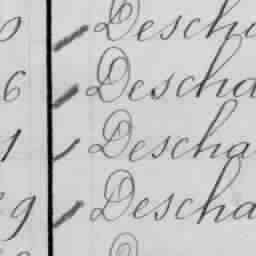 Descha
6 Descha
1 Descha
9 Descha